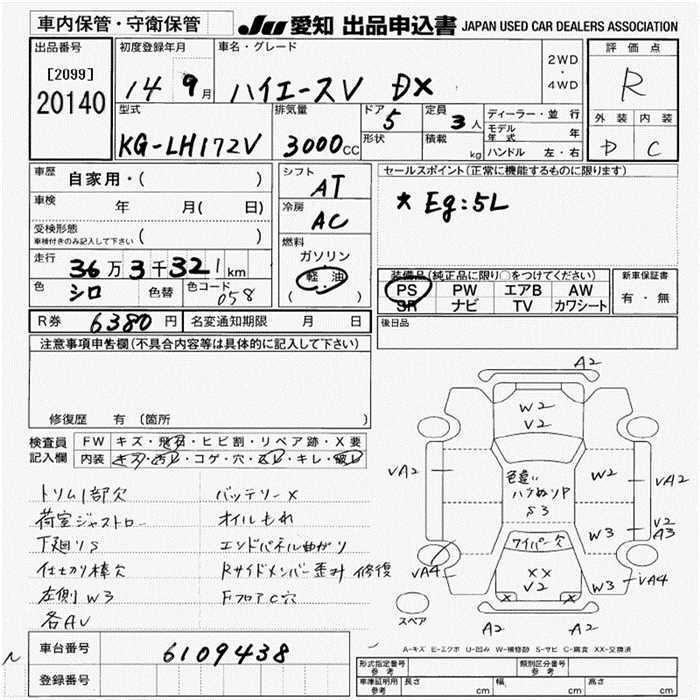 車内保管・守衛保管
JU 愛知 出品申込書 JAPAN USED CAR DEALERS ASSOCIATION
出品番号
[2099]
20140
初度登録年月
14 9月
車名・グレード
ハイエースV DX
2WD
・
4WD
評価点
R
外装 内装
D C
型式
KG-LH172V
排気量
3000cc
ドア
5
形状
定員
3人
積載
kg
ディーラー・並行
モデル年式 年
ハンドル 左・右
車歴
自家用・( )
車検 年 月( 日)
受検形態
車検付きのみ記入して下さい ( )
走行
36万3千321km
色
シロ
色替
色コード
058
シフト
AT
冷房
AC
燃料
ガソリン
軽油
( )
セールスポイント(正常に機能するものに限ります)
* Eg:5L
装備品(純正品に限り○をつけてください)
PS PW エアB AW
SR ナビ TV カワシート
新車保証書
有・無
R券 6380円
名変通知期限 月 日
後日品
注意事項申告欄(不具合内容等は具体的に記入して下さい)
修復歴 有(箇所 )
検査員記入欄
FW キズ・飛石・ヒビ割・リペア跡・X要
内装 キズ・汚レ・コゲ・穴・スレ・キレ・破レ
トリム1部欠
荷室ジャストロー
下廻りS
仕切り棒欠
左側W3
各AU
バッテリーX
オイルもれ
エンドパネル曲がり
Rサイドメンバー歪み 修復
FフロアC穴
A2
W2
V2
VA2
色違い
ハヌぬりP
S3
W2
VA2
W3
V2
A3
ワイパー欠
VA4
XX
V2
X X
W3
VA4
A2
A2
スペア
A-キズ E-エクボ U-凹み W-補修跡 S-サビ C-腐食 XX-交換済
車台番号
6109438
登録番号
型式指定番号
参考
類別区分番号
参考
車庫証明用
参考
長さ cm
幅 cm
高さ cm